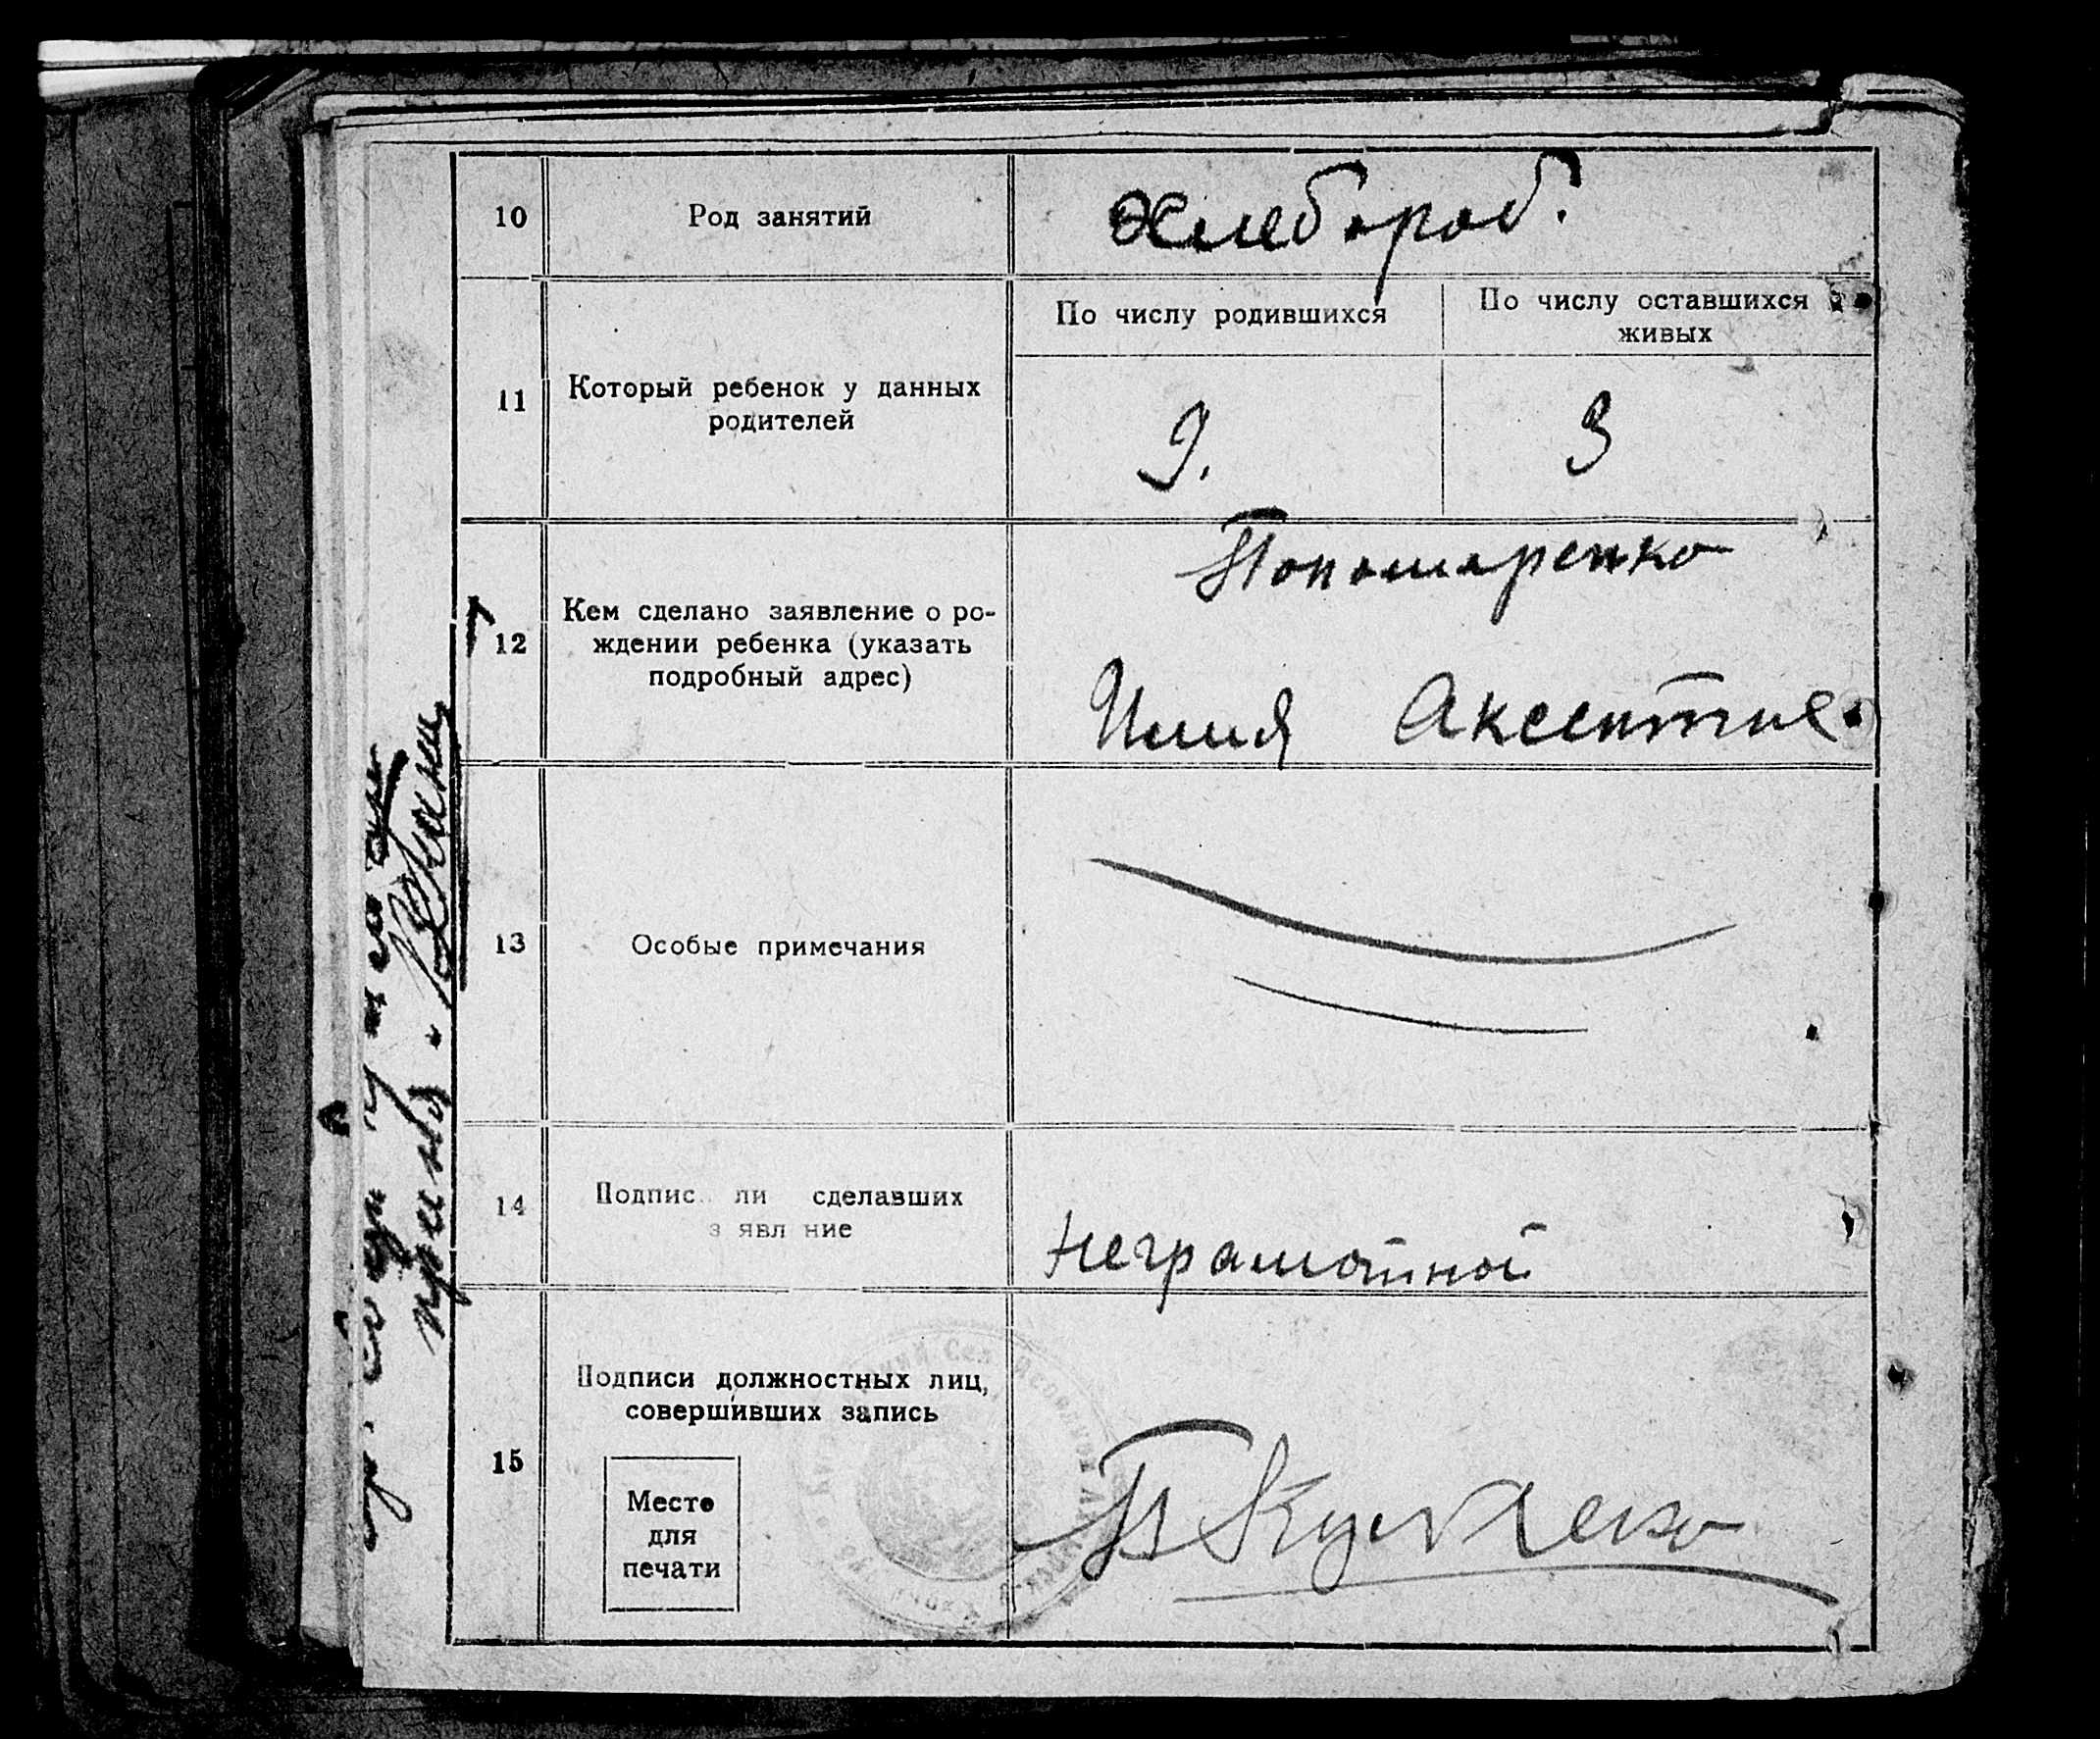 10
Род занятий
хлебороб.
11
Который ребенок у данных
родителей
По числу родившихся
По числу оставшихся
живых
9.
3
12
Кем сделано заявление о ро-
ждении ребенка (указать
подробный адрес)
Пономаренко
Илия Аксентие
13
Особые примечания
14
Подпис ли сделавших
з явл ние
неграмотной
15
Подписи должностных лиц,
совершивших запись
Место
для
печати